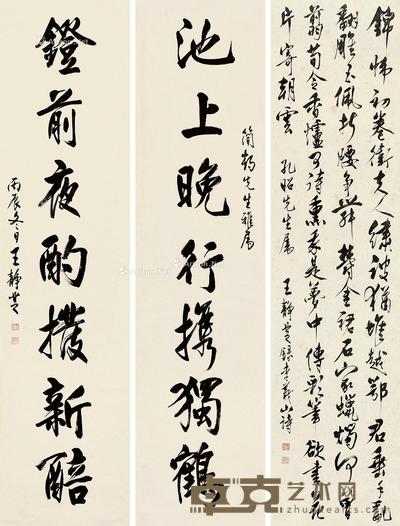 錦幃初卷衛夫人繡被猶堆越鄂君垂手亂
翻雕玉佩折腰爭舞鬱金裙石家蠟燭何曾
翦荀令香爐可待熏我是夢中傳彩筆欲書花
片寄朝雲 孔昭先生屬 王靜芝錄李義山詩
池上晚行携獨鶴
先生雅屬
鐙前夜酌撥新醅
丙辰冬日王靜芝
卓克艺术网